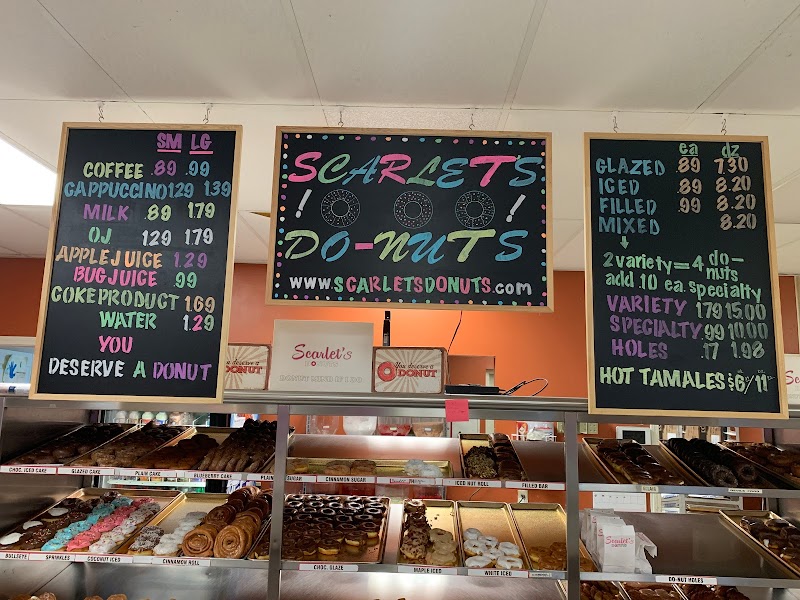 SM LG
COFFEE .89 .99
CAPPUCCINO 1.29 1.39
MILK .89 1.79
OJ 1.29 1.79
APPLE JUICE 1.29
BUG JUICE .99
COKE PRODUCT 1.69
WATER 1.29
YOU
DESERVE A DONUT
SCARLETS
! !
DO-NUTS
WWW.SCARLETSDONUTS.com
ea dz
GLAZED .89 7.30
ICED .89 8.20
FILLED .99 8.20
MIXED 8.20
2 variety = 4 do-nuts
add .10 ea. specialty
VARIETY 1.79 15.00
SPECIALTY .99 10.00
HOLES .17 1.98
HOT TAMALES $6 / 11
DONUT
Scarlet's
DONUTS
DONUT MIND IF I DO
You deserve a
DONUT
CHOC. ICED CAKE
GLAZED CAKE
PLAIN CAKE
BLUEBERRY CAKE
CINNAMON SUGAR
ICED NUT ROLL
FILLED BAR
BULLSEYE
SPRINKLES
COCONUT ICED
CINNAMON ROLL
CHOC. GLAZE
MAPLE ICED
WHITE ICED
DO-NUT HOLES